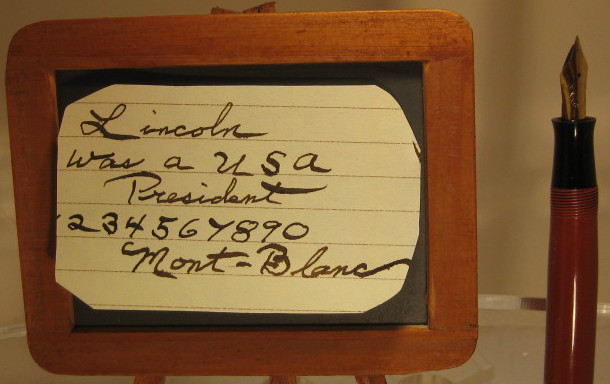 Lincoln
was a USA
President
1234567890
Mont-Blanc